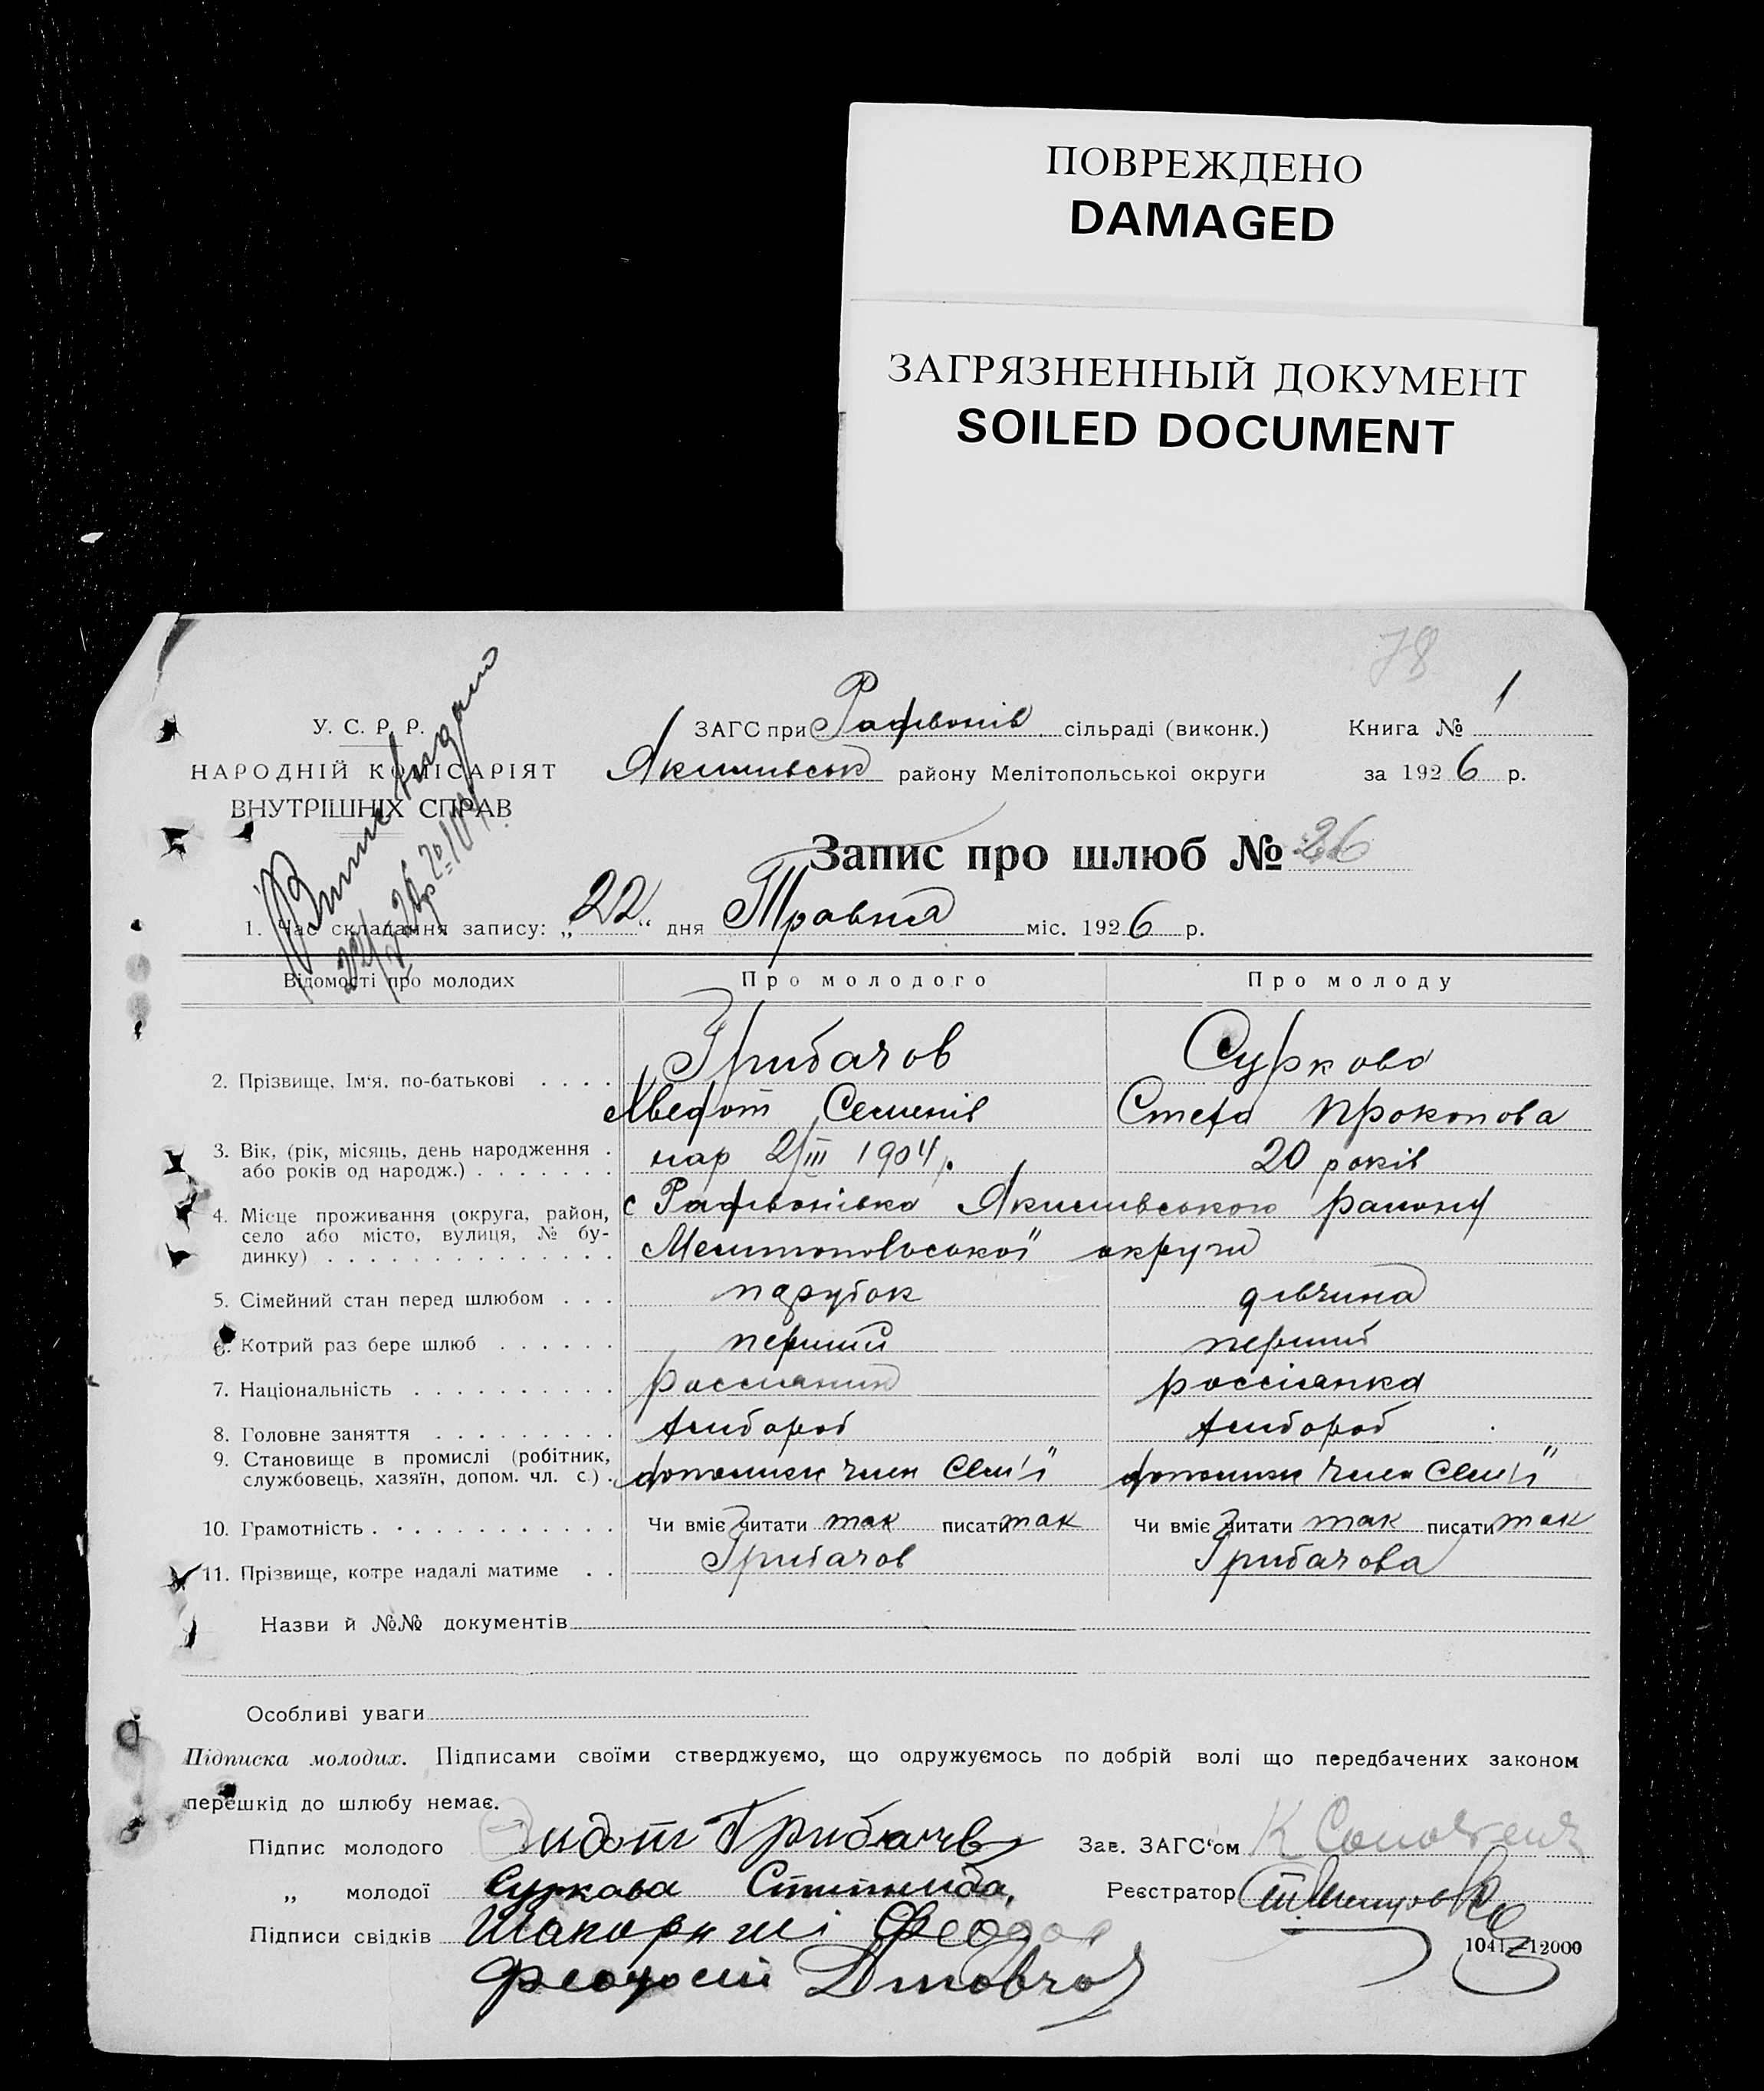 ПОВРЕЖДЕНО
DAMAGED
ЗАГРЯЗНЕННЫЙ ДОКУМЕНТ
SOILED DOCUMENT
78
У. С. Р. Р.
НАРОДНІЙ КОМІСАРІЯТ
ВНУТРІШНІХ СПРАВ
ЗАГС при Рафівонів сільраді (виконк.) Книга № 1
Якимівськ району Мелітопольської округи за 1926 р.
Запис про шлюб № 26
1. Час складання запису: „22" дня Травня міс. 1926 р.
Відомості про молодих Про молодого Про молоду
2. Прізвище, Ім'я, по-батькові . . . . Грибачов Суркова
Хведот Семенів Стефа Прокопова
3. Вік, (рік, місяць, день народження . або років од народж.) . . . . . . . нар 2/III 1904 р. 20 років
4. Місце проживання (округа, район, с Рафівонівка Якимівського району
село або місто, вулиця, № бу-
динку) . . . . . . . . . . . . . . Мелитопольської округи
5. Сімейний стан перед шлюбом . . . парубок дівчина
6. Котрий раз бере шлюб . . . . . . перший перший
7. Національність . . . . . . . . . . россиянин россіянка
8. Головне заняття . . . . . . . . . хлібороб хлібороб
9. Становище в промислі (робітник,
службовець, хазяїн, допом. чл. с.) . допоміжн член сем'ї допоміжн член сем'ї
10. Грамотність . . . . . . . . . . . . Чи вміє читати так писати так Чи вміє читати так писати так
11. Прізвище, котре надалі матиме . . Грибачов Грибачова
Назви й №№ документів
Особливі уваги
Підписка молодих. Підписами своїми стверджуємо, що одружуємось по добрій волі що передбачених законом
перешкід до шлюбу немає.
Підпис молодого Грибачв Зав. ЗАГС'ом
„ молодої Суркава Реєстратор
Підписи свідків
1041 12000